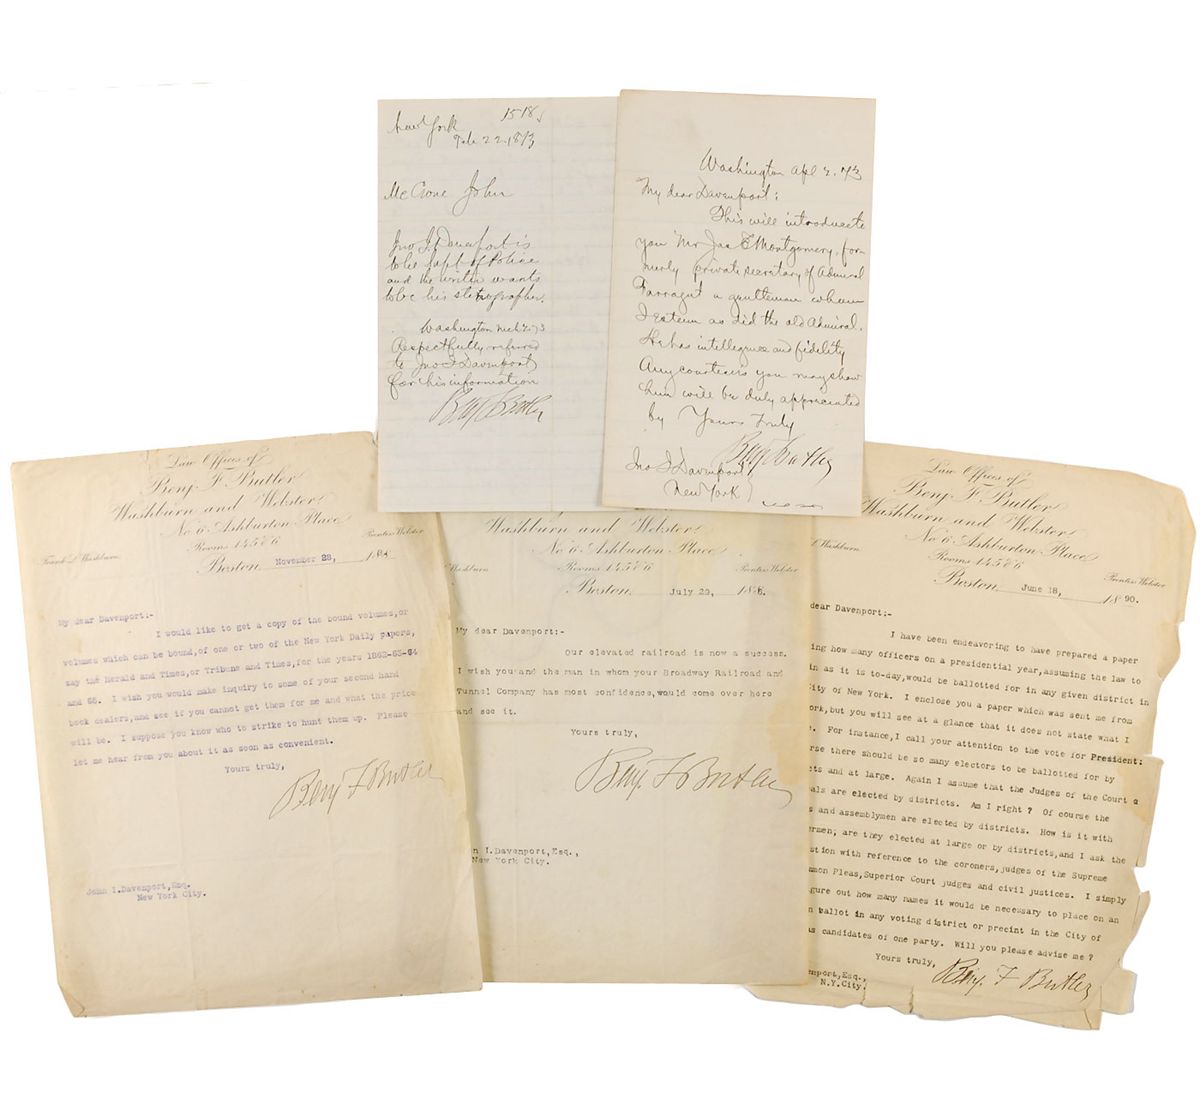 1518
New York
Feb 22, 1873
McCrone John
Jno I. Davenport is
to be Supt of Police
and the writer wants
to be his stenographer.
Washington
Respectfully referred
to Jno I Davenport
for his information
Benj F Butler
Washington Apl 2, 73
My dear Davenport:
This will introduce
you Mr Jas E Montgomery, for-
merly private secretary of Admiral
Farragut a gentleman whom
I esteem as did the old Admiral.
He has intelligence and fidelity
Any courtesies you may show
him will be duly appreciated
by Yours Truly
Benj F Butler
Jno I Davenport
New York
Law Offices of
Benj. F. Butler
Washburn and Webster
No 6 Ashburton Place
Rooms 14 5 & 6
Frank L. Washburn Prentiss Webster
Boston November 28, 188
My dear Davenport:-
I would like to get a copy of the bound volumes, or
volumes which can be bound, of one or two of the New York Daily papers,
say the Herald and Times, or Tribune and Times, for the years 1862-63-64
and 65. I wish you would make inquiry to some of your second hand
book dealers, and see if you cannot get them for me and what the price
will be. I suppose you know who to strike to hunt them up. Please
let me hear from you about it as soon as convenient.
Yours truly,
Benj F Butler
John I. Davenport, Esq.
New York City.
Washburn and Webster
No 6 Ashburton Place
Rooms 14 5 & 6
Washburn Prentiss Webster
Boston July 29, 188
My dear Davenport:-
Our elevated railroad is now a success.
I wish you and the man in whom your Broadway Railroad and
Tunnel Company has most confidence, would come over here
and see it.
Yours truly,
Benj. F Butler
n I. Davenport, Esq.,
New York City.
Law Offices of
Benj. F. Butler
Washburn and Webster
No 6 Ashburton Place
Rooms 14 5 & 6
L Washburn Prentiss Webster
Boston June 18, 1890.
dear Davenport:-
I have been endeavoring to have prepared a paper
ing how many officers on a presidential year, assuming the law to
in as it is to-day, would be ballotted for in any given district in
City of New York. I enclose you a paper which was sent me from
ork, but you will see at a glance that it does not state what I
. For instance, I call your attention to the vote for President:
rse there should be so many electors to be ballotted for by
cts and at large. Again I assume that the Judges of the Court &
als are elected by districts. Am I right? Of course the
s and assemblymen are elected by districts. How is it with
ermen; are they elected at large or by districts, and I ask the
stion with reference to the coroners, judges of the Supreme
mmon Pleas, Superior Court judges and civil justices. I simply
igure out how many names it would be necessary to place on an
n ballot in any voting district or precint in the City of
as candidates of one party. Will you please advise me?
Yours truly,
Benj. F Butler
enport, Esq.,
N.Y. City.